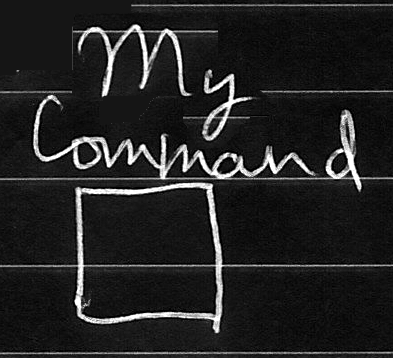 My
Command